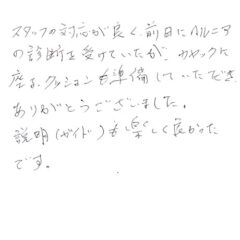 スタッフの対応が良く、前日にヘルニア
の診断を受けていたが、カヤックに
座る、クッションも準備していただき、
ありがとうございました。
説明(ガイド)も楽しく良かった
です。